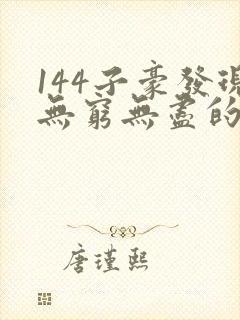 144子豪發現
無窮無盡的
唐瑾熙